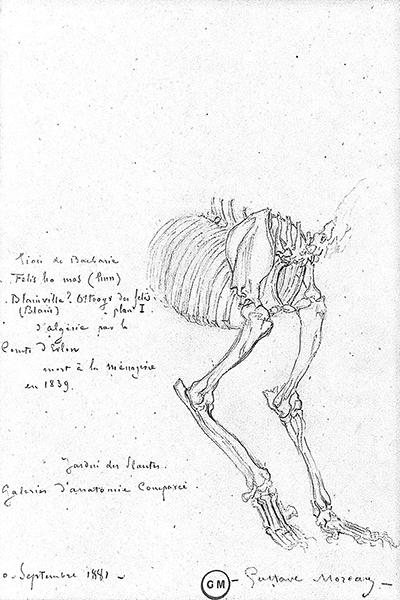 lion de Barbarie
Felis leo mas (Linn)
Blainville? Osteogr du felis
(Blain) plan I
d'algérie par le
Comte d'Erlon
mort à la ménagerie
en 1839.
Jardin des Plantes.
Galeries d'anatomie Comparée
Septembre 1881
GM
Gustave Moreau